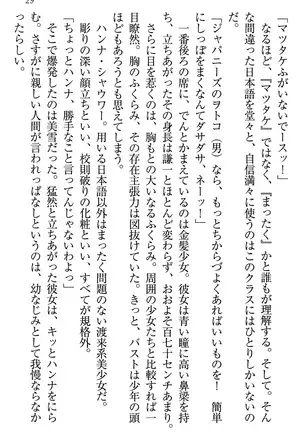 29
「マッタケふがいないでースッ！」
なるほど、『マッタケ』ではなく、『まったく』かと誰もが理解する。そして。そん
な間違った日本語を堂々と、自信満々に使うのはこのクラスにはひとりしかいないの
だ。
「ジャパニーズのヲトコ（男）なら、もっとちからづよくあればいいものを！　簡単
にしっぽをまくなんてダサダサ、ネーッ！」
一番後ろの席に、でんとかまえているのは金髪少女。彼女は青い瞳に高い鼻梁を持
ち、立ちあがったその身長は謙一とほとんど変わらず、おおよそ百七十センチあまり。
さらに目を惹くのは、胸もとの大いなるふくらみ。周囲の少女たちと比較すれば一
目瞭然。胸のふくらみ、その存在主張力は図抜けていた。きっと、バストは少年の頭
ほどもあろうとも思えてしまう。
ハンナ・シャワー。用いる日本語以外はまったく問題のない渡来系美少女だ。
彫りの深い顔立ちといい、校則破りの化粧といい、すべてが規格外。
「ちょっとハンナ、勝手なこと言ってんじゃないわよっ」
そこで爆発したのは美雪だった。猛然と立ちあがった彼女は、キッとハンナをにら
む。さすがに親しい人間が言われっぱなしというのは、幼なじみとして我慢ならなか
ったらしい。